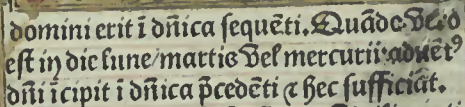 domini erit ī dñica sequēti. Quādo ꝟo
est in die lune/ martis vel mercurii: aduētꝰ
dñi īcipit ī dñica p̄cedēti ⁊ hec sufficiāt.